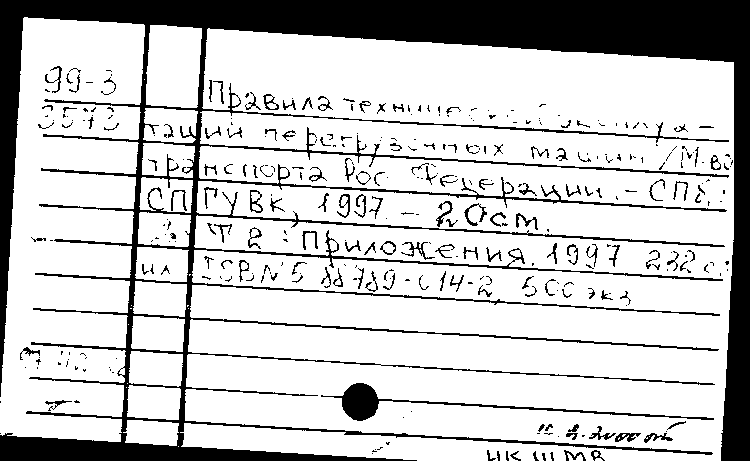 99-3
3573
Правила технической эксплуа-
тации перегрузочных машин /М-во
транспорта Рос. Федерации. - СПб.:
СПГУВК, 1997. - 20 см.
Т 2 : Приложения. 1997 232 с.:
ил ISBN 5 88789-014-2, 500 экз